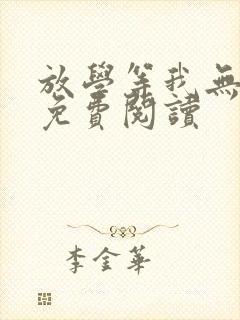 放學等我無
免費閱讀
李金華